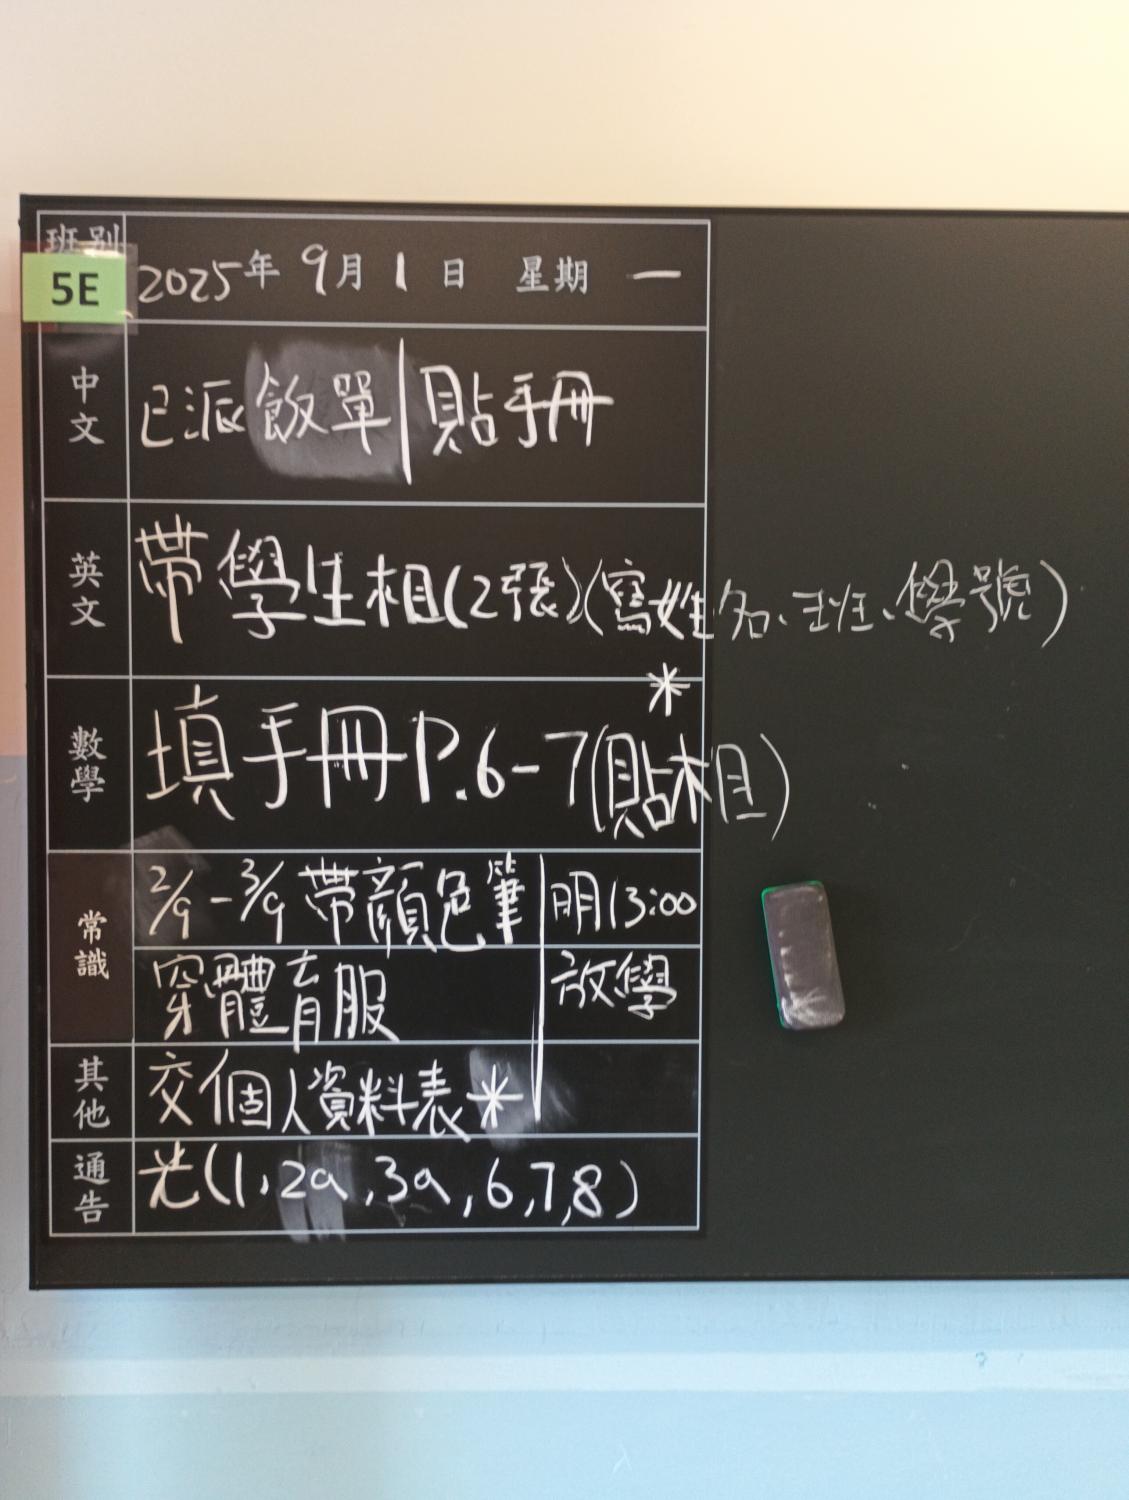 班別
5E
2025年 9月 1日 星期 一
中文
已派飯單 | 貼手冊
英文
帶學生相(2張)(寫姓名、班、學號)
數學
填手冊P.6-7(貼相)*
常識
2/9-3/9帶顏色筆 | 明13:00
穿體育服 | 放學
其他
交個人資料表*
通告
光(1,2a,3a,6,7,8)